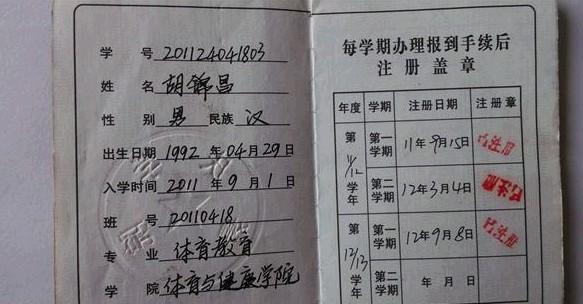 学 号 201124041803
姓 名 胡锦昌
性 别 男 民族 汉
出生日期 1992 年 04 月 29 日
入学时间 2011 年 9 月 1 日
班 号 20110418
专 业 体育教育
学 院 体育与健康学院
每学期办理报到手续后
注册盖章
年度 学期 注册日期 注册章
第11/12学年 第一学期 11年9月15日 已注册
第二学期 12年3月4日 已注册
第12/13学年 第一学期 12年9月8日 已注册
第二学期 年 月 日